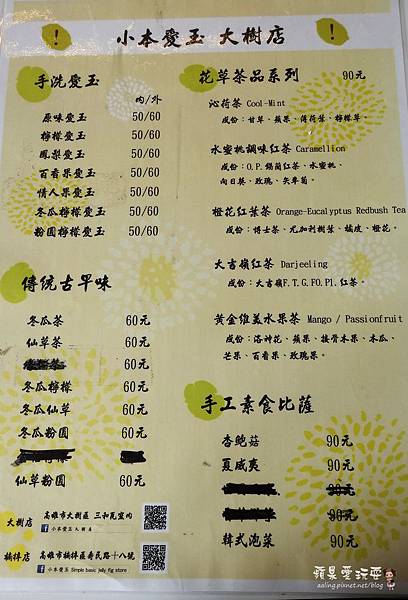 小本愛玉 大樹店
手洗愛玉
內/外
原味愛玉 50/60
檸檬愛玉 50/60
鳳梨愛玉 50/60
百香果愛玉 50/60
情人果愛玉 50/60
冬瓜檸檬愛玉 50/60
粉圓檸檬愛玉 50/60
傳統古早味
冬瓜茶 60元
仙草茶 60元
60元
冬瓜檸檬 60元
冬瓜仙草 60元
冬瓜粉圓 60元
仙草粉圓 60元
大樹店 高雄市大樹區 三和瓦窯內
小本愛玉 大樹店
橋仔店 高雄市橋頭區壽民路十八號
小本愛玉 Simple basic jelly fig store
花草茶品系列 90元
沁荷茶 Cool-Mint
成份:甘草、蘋果、薄荷葉、檸檬草。
水蜜桃調味紅茶 Caramellion
成份:O.P.錫蘭紅茶、水蜜桃、
向日葵、玫瑰、矢車菊。
橙花紅葉茶 Orange-Eucalyptus Redbush Tea
成份:博士茶、尤加利樹葉、橘皮、橙花。
大吉嶺紅茶 Darjeeling
成份:大吉嶺F.T.G.FO.P1.紅茶。
黃金維美水果茶 Mango / Passionfruit
成份:洛神花、蘋果、接骨木果、木瓜、
芒果、百香果、玫瑰果。
手工素食比薩
杏鮑菇 90元
夏威夷 90元
90元
90元
韓式泡菜 90元
蘋果愛玩耍
aaling.pixnet.net/blog